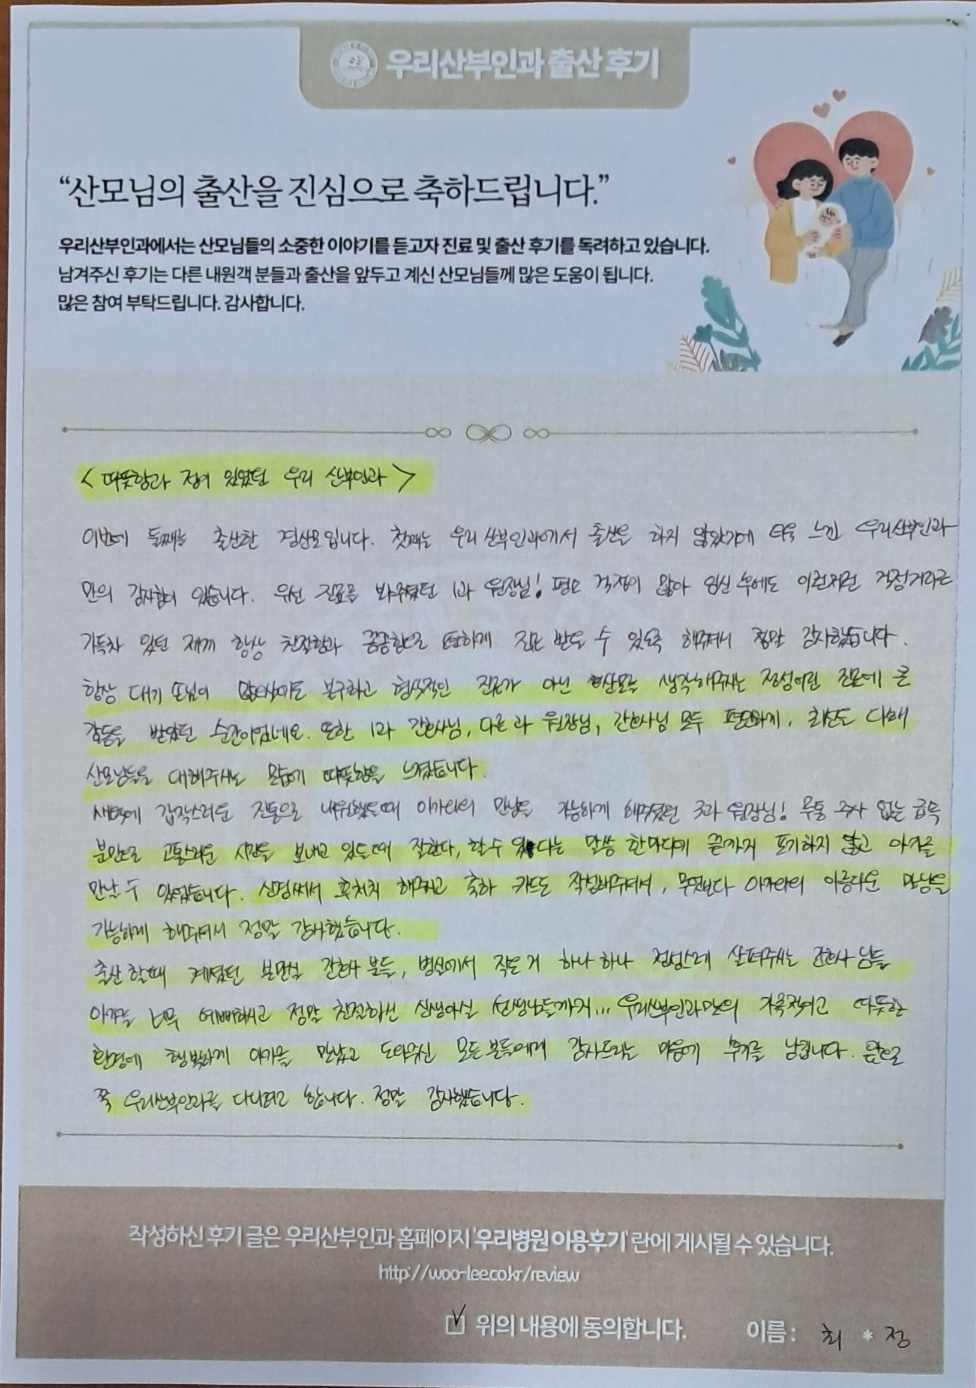 우리산부인과 출산 후기
“산모님의 출산을 진심으로 축하드립니다.”
우리산부인과에서는 산모님들의 소중한 이야기를 듣고자 진료 및 출산 후기를 독려하고 있습니다.
남겨주신 후기는 다른 내원객 분들과 출산을 앞두고 계신 산모님들께 많은 도움이 됩니다.
많은 참여 부탁드립니다. 감사합니다.
< 따뜻함과 정이 있었던 우리 산부인과 >
이번에 둘째를 출산한 경산모입니다. 첫째는 우리산부인과에서 출산을 하지 않았기에 더욱 느낀 우리산부인과
만의 감사함이 있습니다. 우선 진료를 봐주셨던 1과 원장님! 평소 걱정이 많아 임신 후에도 이런저런 걱정거리로
가득차 있던 제게 항상 친절함과 꼼꼼함으로 편하게 진료 받을 수 있도록 해주셔서 정말 감사했습니다.
항상 대기 손님이 많으심에도 불구하고 형식적인 진료가 아닌 산모를 생각해주시는 정성어린 진료에 큰
감동을 받았던 순간이었네요. 또한 1과 간호사님, 다른 과 원장님, 간호사님 모두 편안하게, 최선도 다해
산모님들을 대해주시는 모습에 따뜻함을 느꼈습니다.
새벽에 갑작스러운 진통으로 내원했을때 아가와의 만남을 가능하게 해주셨던 3과 원장님! 무통 주사 없는 급속
분만으로 고통스러운 시간을 보내고 있을때 잘한다, 할 수 있다는 말씀 한마디에 끝까지 포기하지 않고 아가를
만날 수 있었습니다. 신경써서 후처치 해주시고 축하 카드도 작성해주셔서, 무엇보다 아가와의 아름다운 만남을
가능하게 해주셔서 정말 감사했습니다.
출산 할때 계셨던 분만실 간호사 분들, 병실에서 작은거 하나하나 정성스레 살펴주시는 간호사 님들
아가를 너무 예뻐해주시고 정말 친절하신 신생아실 선생님들까지... 우리산부인과만의 가족적이고 따뜻한
환경에 행복하게 아가를 만났고 도와주신 모든 분들에게 감사드리는 마음에 후기를 남깁니다. 앞으로
쭉 우리산부인과를 다니려고 합니다. 정말 감사했습니다.
작성하신 후기 글은 우리산부인과 홈페이지 '우리병원 이용후기' 란에 게시될 수 있습니다.
http://woo-lee.co.kr/review
위의 내용에 동의합니다. 이름 : 최 * 정